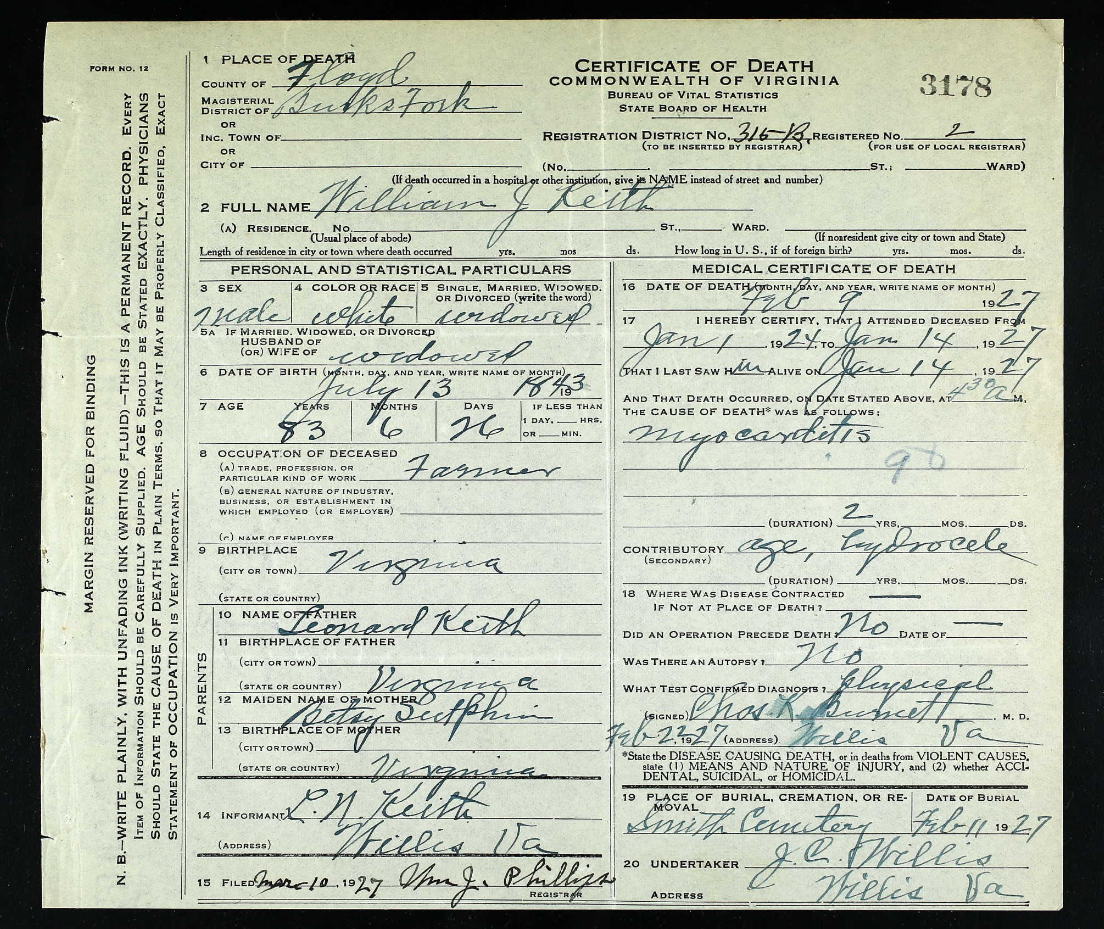 FORM NO. 12
MARGIN RESERVED FOR BINDING
N. B.—WRITE PLAINLY, WITH UNFADING INK (WRITING FLUID)—THIS IS A PERMANENT RECORD. EVERY
ITEM OF INFORMATION SHOULD BE CAREFULLY SUPPLIED. AGE SHOULD BE STATED EXACTLY. PHYSICIANS
SHOULD STATE THE CAUSE OF DEATH IN PLAIN TERMS, SO THAT IT MAY BE PROPERLY CLASSIFIED, EXACT
STATEMENT OF OCCUPATION IS VERY IMPORTANT.
1 PLACE OF DEATH
COUNTY OF Floyd
MAGISTERIAL
DISTRICT OF Burks Fork
OR
INC. TOWN OF
OR
CITY OF
CERTIFICATE OF DEATH
COMMONWEALTH OF VIRGINIA
BUREAU OF VITAL STATISTICS
STATE BOARD OF HEALTH
3178
REGISTRATION DISTRICT NO. 315-B REGISTERED NO. 2
(TO BE INSERTED BY REGISTRAR) (FOR USE OF LOCAL REGISTRAR)
(NO. ST.; WARD)
(If death occurred in a hospital or other institution, give its NAME instead of street and number)
2 FULL NAME William J Keith
(A) RESIDENCE. NO. ST., WARD.
(Usual place of abode) (If nonresident give city or town and State)
Length of residence in city or town where death occurred yrs. mos ds. How long in U. S., if of foreign birth? yrs. mos. ds.
PERSONAL AND STATISTICAL PARTICULARS
3 SEX
male
4 COLOR OR RACE
white
5 SINGLE, MARRIED, WIDOWED,
OR DIVORCED (write the word)
widowed
5A IF MARRIED, WIDOWED, OR DIVORCED
HUSBAND OF
(OR) WIFE OF widowed
6 DATE OF BIRTH (MONTH, DAY, AND YEAR, WRITE NAME OF MONTH)
July 13 1843
7 AGE YEARS MONTHS DAYS IF LESS THAN
1 DAY, HRS.
OR MIN.
83 6 26
8 OCCUPATION OF DECEASED
(A) TRADE, PROFESSION, OR
PARTICULAR KIND OF WORK Farmer
(B) GENERAL NATURE OF INDUSTRY,
BUSINESS, OR ESTABLISHMENT IN
WHICH EMPLOYED (OR EMPLOYER)
(C) NAME OF EMPLOYER
9 BIRTHPLACE
(CITY OR TOWN) Virginia
(STATE OR COUNTRY)
PARENTS
10 NAME OF FATHER
Leonard Keith
11 BIRTHPLACE OF FATHER
(CITY OR TOWN)
(STATE OR COUNTRY) Virginia
12 MAIDEN NAME OF MOTHER
Betsy Sutphin
13 BIRTHPLACE OF MOTHER
(CITY OR TOWN)
(STATE OR COUNTRY) Virginia
14 INFORMANT L. N. Keith
(ADDRESS) Willis Va
15 FILED Mar 10, 1927 Wm J. Phillips
REGISTRAR
MEDICAL CERTIFICATE OF DEATH
16 DATE OF DEATH (MONTH, DAY, AND YEAR, WRITE NAME OF MONTH)
Feb 9 1927
17 I HEREBY CERTIFY, THAT I ATTENDED DECEASED FROM
Jan 1, 1924, TO Jan 14, 1927
THAT I LAST SAW HIm ALIVE ON Jan 14, 1927
AND THAT DEATH OCCURRED, ON DATE STATED ABOVE, AT 4 30 A M.
THE CAUSE OF DEATH* WAS AS FOLLOWS:
myocarditis
90
(DURATION) 2 YRS. MOS. DS.
CONTRIBUTORY age, hydrocele
(SECONDARY)
(DURATION) YRS. MOS. DS.
18 WHERE WAS DISEASE CONTRACTED
IF NOT AT PLACE OF DEATH?
DID AN OPERATION PRECEDE DEATH? No DATE OF
WAS THERE AN AUTOPSY? No
WHAT TEST CONFIRMED DIAGNOSIS? physical
(SIGNED) Chas K Burnett M. D.
Feb 22, 1927 (ADDRESS) Willis Va
*State the DISEASE CAUSING DEATH, or in deaths from VIOLENT CAUSES,
state (1) MEANS AND NATURE OF INJURY, and (2) whether ACCI-
DENTAL, SUICIDAL, or HOMICIDAL.
19 PLACE OF BURIAL, CREMATION, OR RE-
MOVAL
Smith Cemetery
DATE OF BURIAL
Feb 11 1927
20 UNDERTAKER J. C. Willis
ADDRESS Willis Va